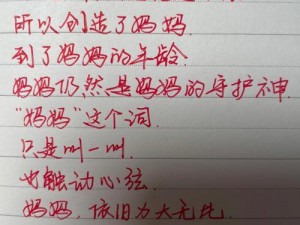 所以创造了妈妈.
到了妈妈的年龄.
妈妈仍然是妈妈的守护神.
“妈妈”这个词.
只是叫一叫
也触动心弦.
妈妈，依旧力大无比.